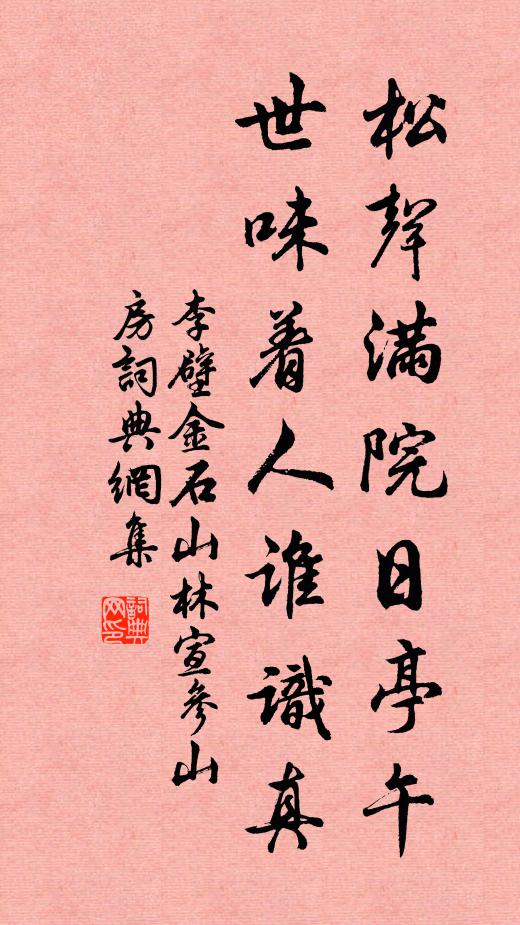 松聲滿院日亭午
世味着人誰識真
李壁金石山林宣參山
房詞典網集
詞典
网印